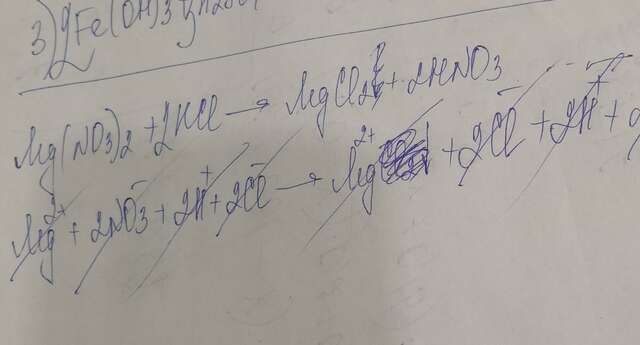 3) 2Fe(OH)3
Mg(NO3)2 + 2HCl → MgCl2 + 2HNO3
Mg²⁺ + 2NO3⁻ + 2H⁺ + 2Cl⁻ → Mg²⁺ + 2Cl⁻ + 2H⁺ +